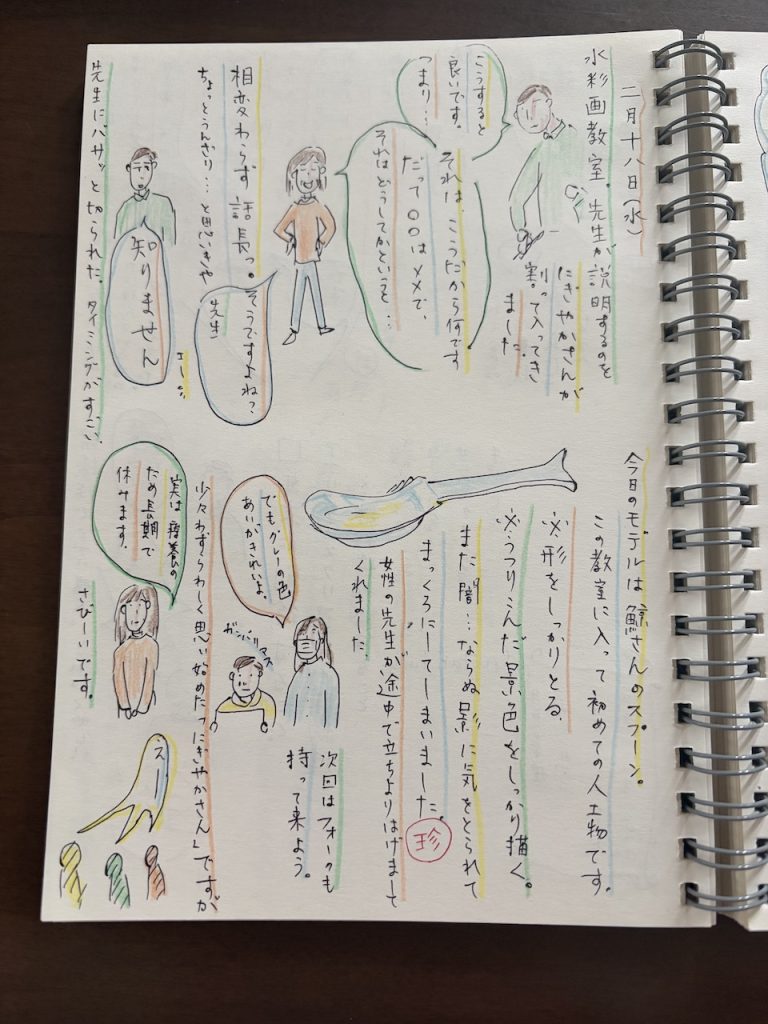 二月十八日(水)
水彩画教室。先生が説明するのを
にぎやかさんが
割って入ってき
ました。
こうすると
良いです。
つまり…
それは、こうだから何です
だって〇〇は〆〆で、
それはどうしてかというと…
相変わらず話長っ。
ちょっとうんざり…と思いきや
そうですよね?
先生
知りません
えー。
先生にバサッと切られた。タイミングがすごい
今日のモデルは鯨さんのスプーン。
この教室に入って初めての人工物です。
※形をしっかりとる。
※うつりこんだ景色をしっかり描く。
また闇…ならぬ影に気をとられて
まっくろにしてしまいました。
珍
女性の先生が途中で立ちよりはげまして
くれました。
でもグレーの色
あいがきれいよ。
ガンバリマス
次回はフォークも
持って来よう。
少々わずらわしく思い始めた「にぎやかさん」ですが
実は療養の
ため長期で
休みます。
さびーいです。
えー